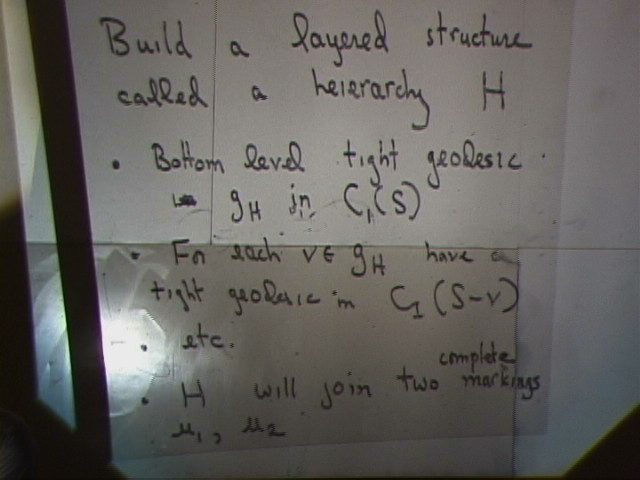 Build a layered structure
called a heierarchy H
• Bottom level tight geodesic
g_H in C_1(S)
• For each v ∈ g_H have a
tight geodesic in C_1 (S-v)
• etc.
• H will join two complete markings
μ_1, μ_2